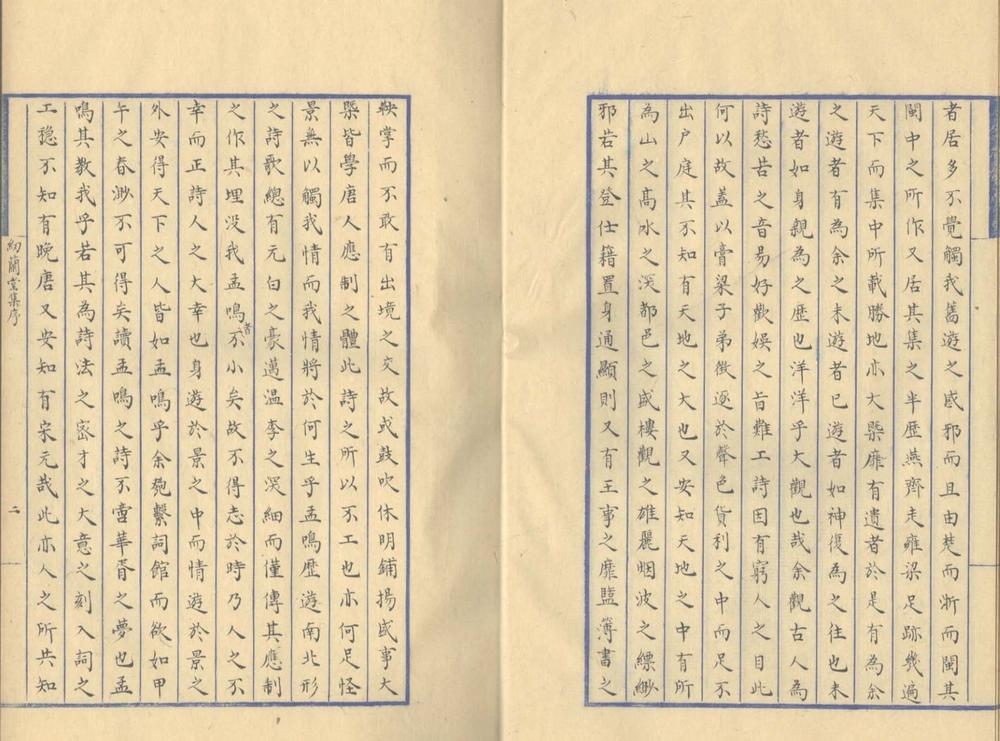 者居多不覺觸我舊遊之感邪而且由楚而浙而閩其
閩中之所作又居其集之半歷燕齊走雍梁足跡幾遍
天下而集中所載勝地亦大槩靡有遺者於是有為余
之遊者有為余之未遊者已遊者如神復為之往也未
遊者如身親為之歷也洋洋乎大觀也哉余觀古人為
詩愁苦之音易好歡娛之旨難工詩因有窮人之目此
何以故蓋以膏粱子弟徵逐於聲色貨利之中而足不
出户庭其不知有天地之大也又安知天地之中有所
為山之髙水之深都邑之盛樓觀之雄麗烟波之縹緲
邪若其登仕籍置身通顯則又有王事之靡盬簿書之
鞅掌而不敢有出境之交故或鼓吹休明鋪揚盛事大
槩皆學唐人應制之體此詩之所以不工也亦何足怪
景無以觸我情而我情將於何生乎孟鳴歷遊南北形
之詩歌總有元白之豪邁温李之深細而僅傳其應制
之作其埋没我孟鳴者不小矣故不得志於時乃人之不
幸而正詩人之大幸也身遊於景之中而情遊於景之
外安得天下之人皆如孟鳴乎余匏繫詞館而欲如甲
午之春渺不可得矣讀孟鳴之詩不啻華胥之夢也孟
鳴其教我乎若其為詩法之密才之大意之刻入詞之
工穏不知有晚唐又安知有宋元哉此亦人之所共知
紉蘭堂集序
二